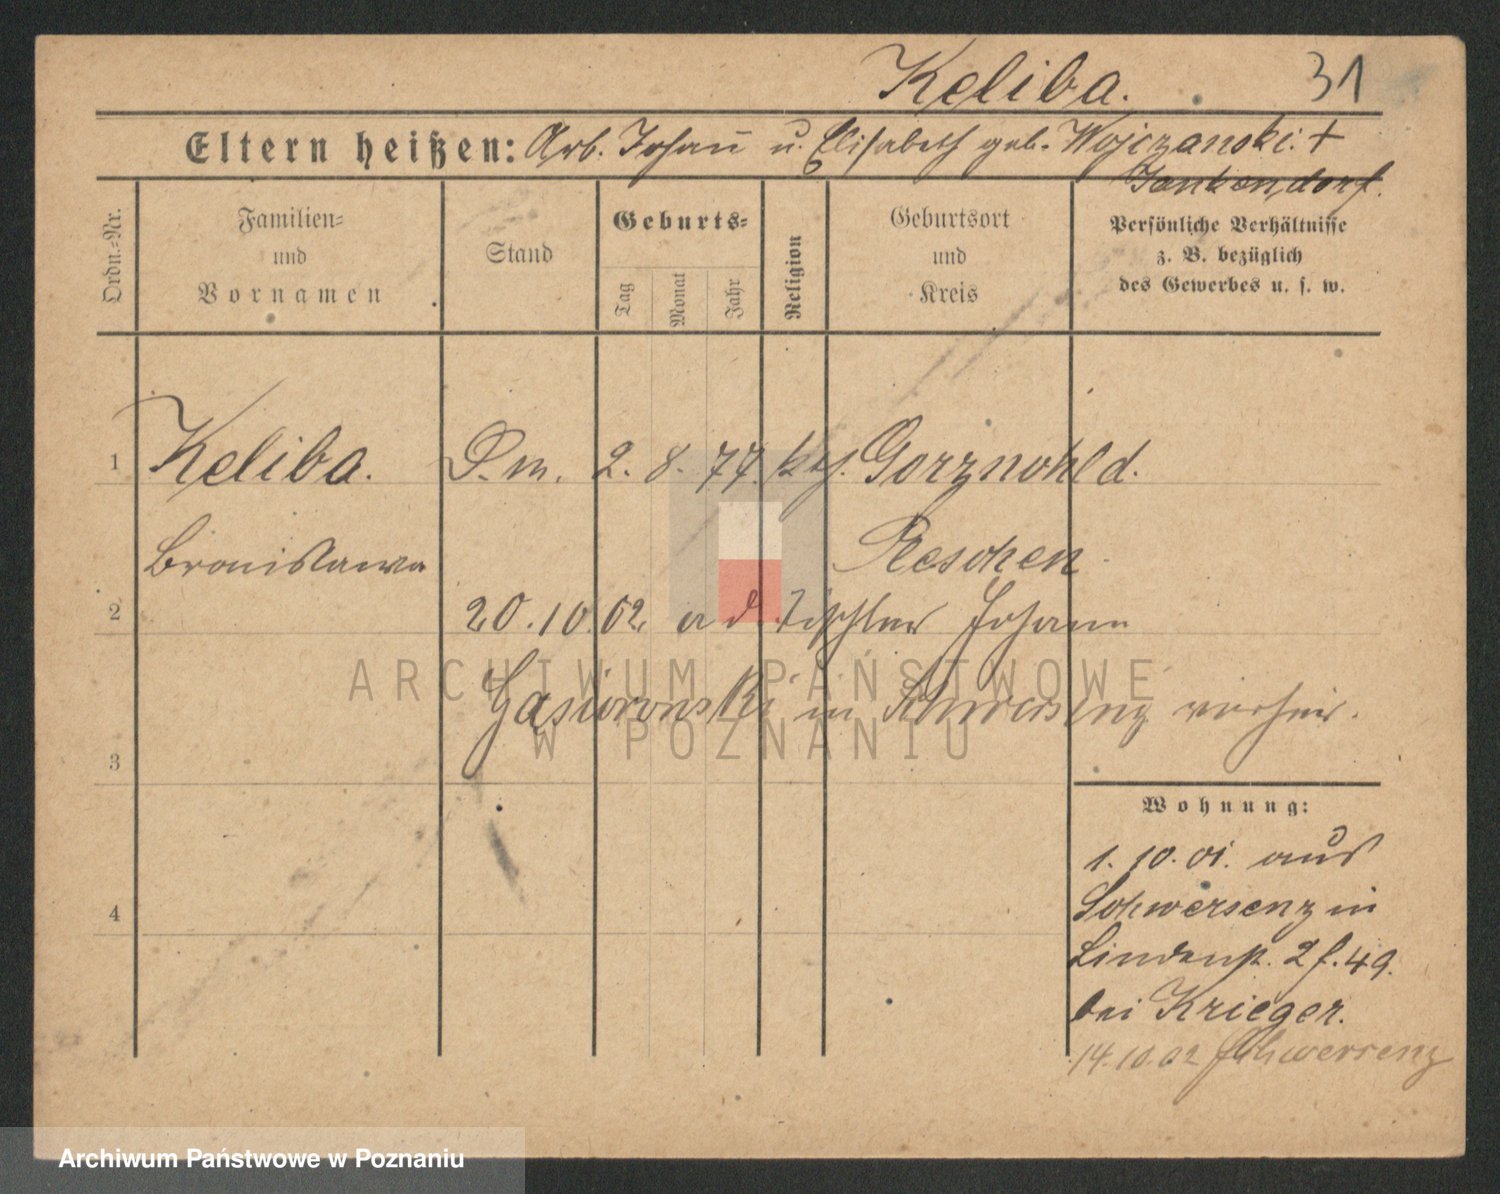 Keliba. 31
Eltern heißen: Arb. Johann u. Elisabeth geb. Wojczanski. +
Jankendorf.
Ordn.=Nr.
Familien=
und
Vornamen
Stand
Geburts=
Tag
Monat
Jahr
Religion
Geburtsort
und
Kreis
Persönliche Verhältnisse
z. B. bezüglich
des Gewerbes u. s. w.
1 Keliba. D. m. 2. 8. 77. kth. Gorznohld.
Bronislawa
2 20.10.02 a d. Tischler Johann
Gasiorowski in Schwersenz verheir.
3
Wohnung:
1. 10. 01. aus
Schwersenz in
Lindenst. 2 f. 49.
4
bei Krieger.
14.10.02 Schwersenz
ARCHIWUM PAŃSTWOWE
W POZNANIU
Archiwum Państwowe w Poznaniu